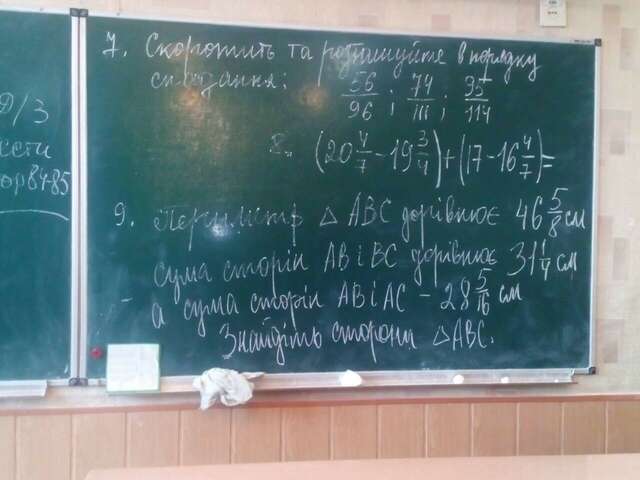 Д/З
ор8485
7. Скоротить та розташуйте в порядку
спадання: 56/96 ; 74/111 ; 95/114
8. (20 4/7 - 19 3/4) + (17 - 16 4/7) =
9. Периметр △ ABC дорівнює 46 5/8 см
сума сторін AB і BC дорівнює 31 1/4 см
а сума сторін AB і AC - 28 5/16 см
Знайдіть сторони △ABC.